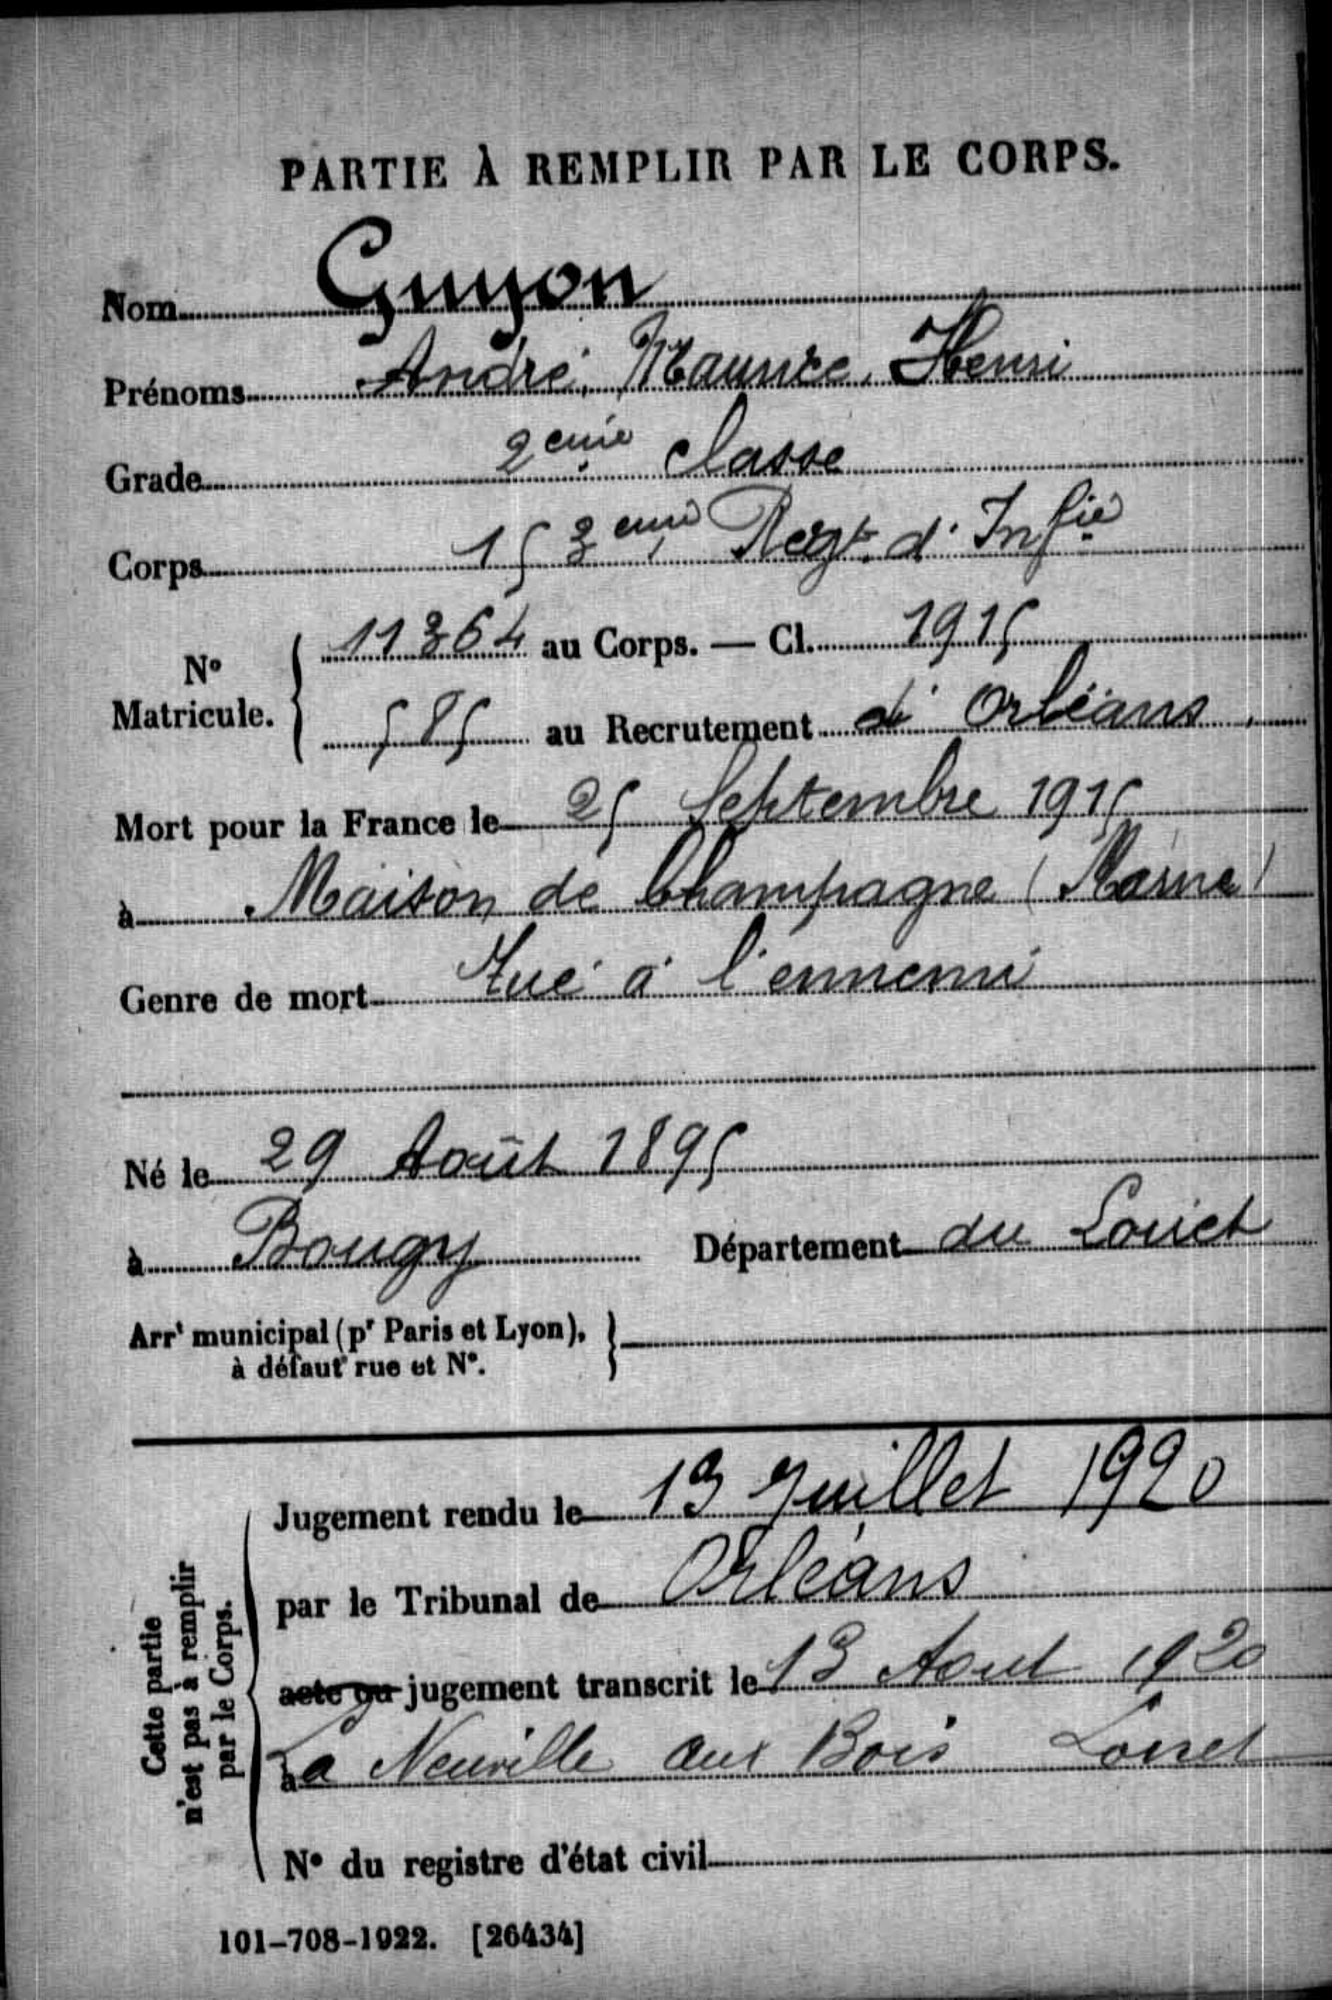 PARTIE À REMPLIR PAR LE CORPS.
Nom Guyon
Prénoms André, Maurice, Henri
Grade 2eme classe
Corps 153eme Regt. d'Infie
N° Matricule. { 11364 au Corps. — Cl. 1915
585 au Recrutement d'Orléans.
Mort pour la France le 25 Septembre 1915
à Maison de Champagne (Marne)
Genre de mort Tué à l'ennemi
Né le 29 Août 1895
à Bougy Département du Loiret
Arrt municipal (pr Paris et Lyon), }
à défaut rue et N°.
Cette partie
n'est pas à remplir
par le Corps.
Jugement rendu le 13 Juillet 1920
par le Tribunal de Orléans
acte ou jugement transcrit le 13 Aout 1920
à La Neuville aux Bois Loiret
N° du registre d'état civil
101-708-1922. [26434]